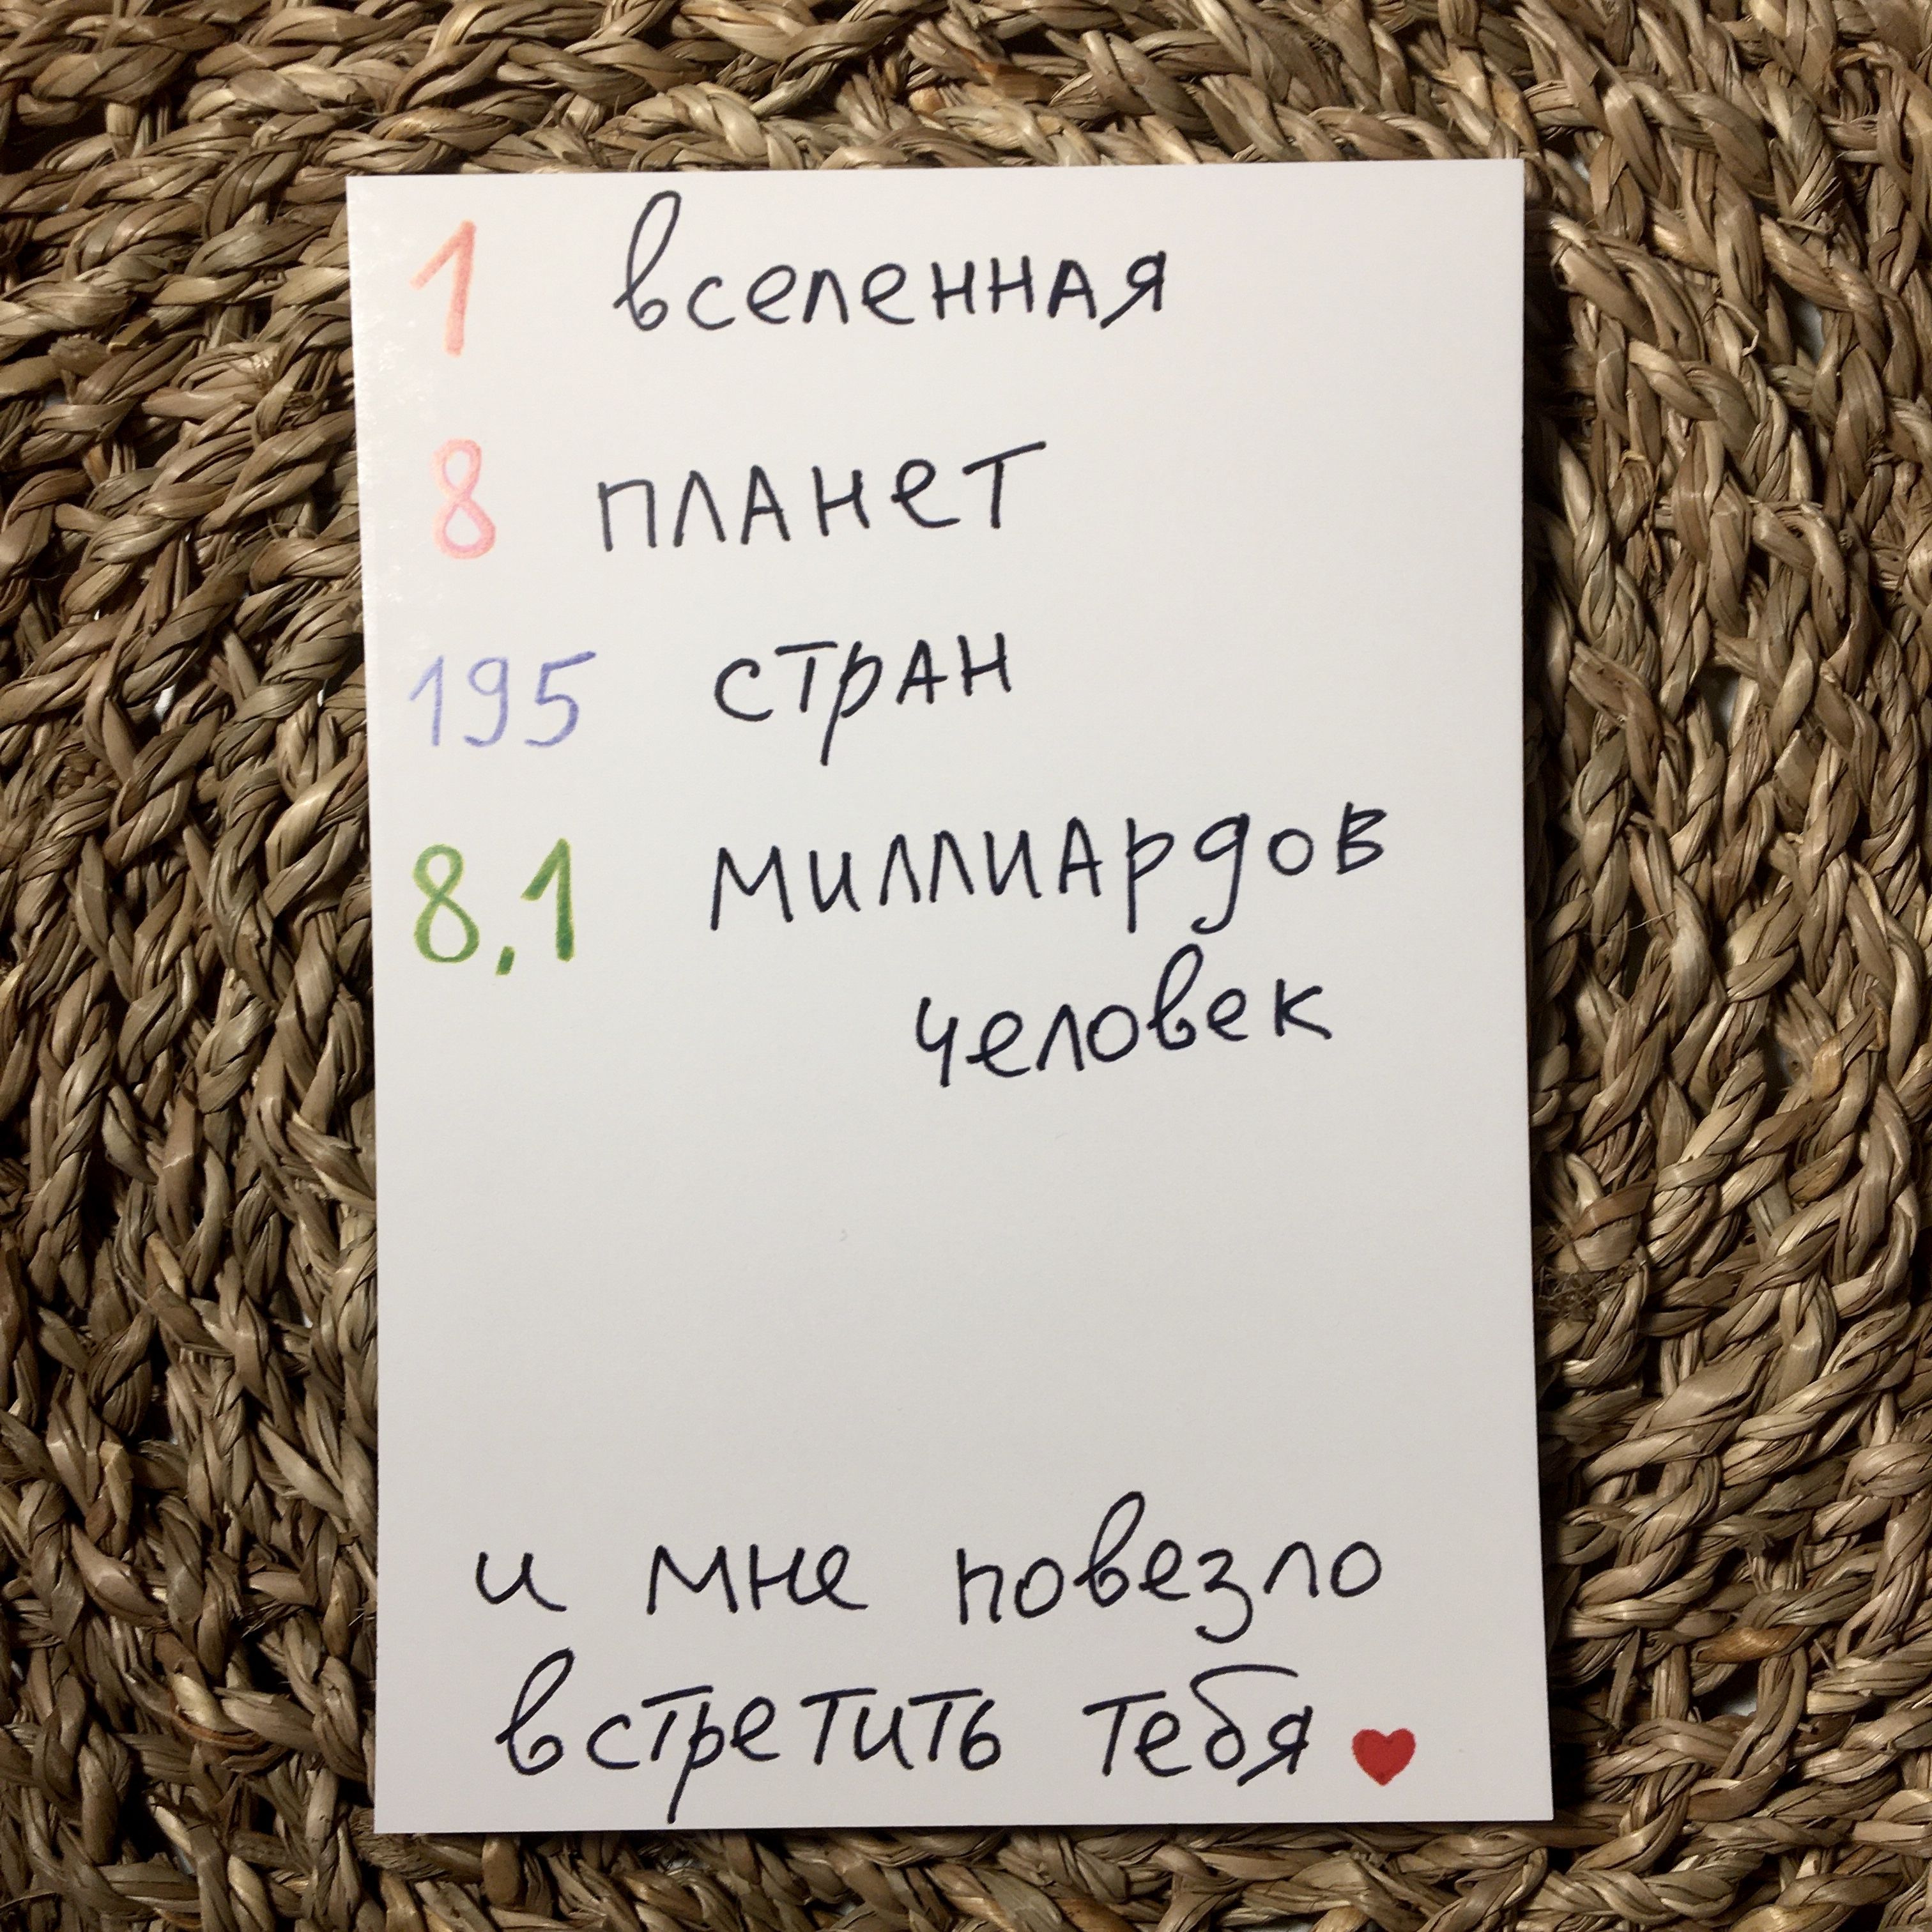 1 вселенная
8 планет
195 стран
8,1 миллиардов
человек
и мне повезло
встретить тебя